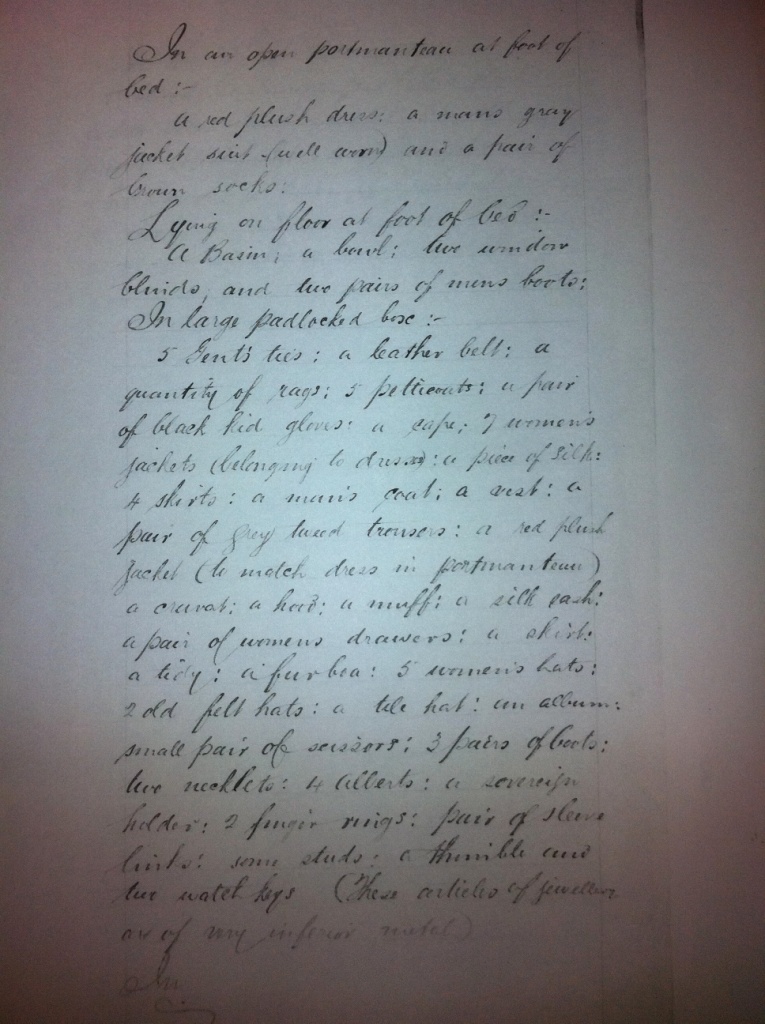 In an open portmanteau at foot of
bed :-
a red plush dress: a mans gray
jacket suit (well worn) and a pair of
brown socks:
Lying on floor at foot of bed :-
A Basin; a bowl; two window
blinds, and two pairs of mens boots;
In large padlocked box :-
5 Gent's ties: a leather belt: a
quantity of rags; 5 petticoats; a pair
of black kid gloves: a cape; 7 women's
jackets (belonging to dress): a piece of silk:
4 skirts: a man's coat; a vest: a
pair of grey tweed trousers: a red plush
jacket (to match dress in portmanteau)
a cravat; a hood; a muff; a silk sash:
a pair of womens drawers: a skirt:
a tidy: a fur boa: 5 women's hats:
2 old felt hats: a tile hat: an album:
small pair of scissors; 3 pairs of boots:
two necklets: 4 Alberts: a sovereign
holder: 2 finger rings: pair of sleeve
links: some studs: a thimble and
two watch keys (These articles of jewellery
are of very inferior metal)
In